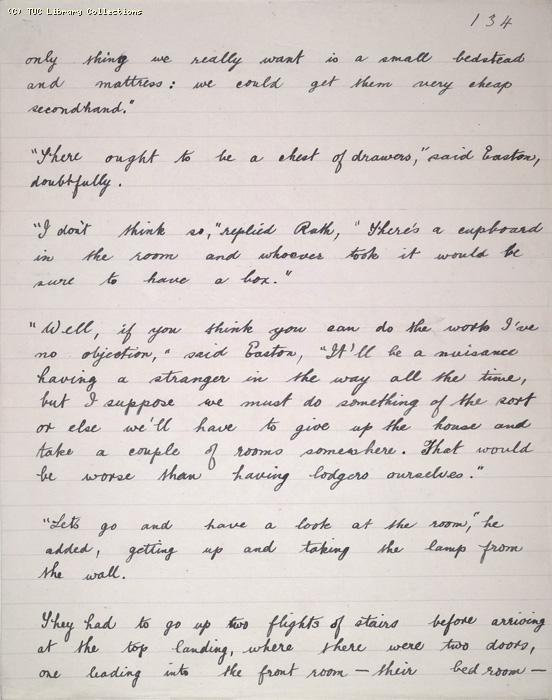 (C) TUC Library Collections
134
only thing we really want is a small bedstead
and mattress: we could get them very cheap
secondhand."
"There ought to be a chest of drawers," said Easton,
doubtfully.
"I don't think so," replied Ruth, "There's a cupboard
in the room and whoever took it would be
sure to have a box."
"Well, if you think you can do the work I've
no objection," said Easton, "It'll be a nuisance
having a stranger in the way all the time,
but I suppose we must do something of the sort
or else we'll have to give up the house and
take a couple of rooms somewhere. That would
be worse than having lodgers ourselves."
"Lets go and have a look at the room," he
added, getting up and taking the lamp from
the wall.
They had to go up two flights of stairs before arriving
at the top landing, where there were two doors,
one leading into the front room — their bedroom —